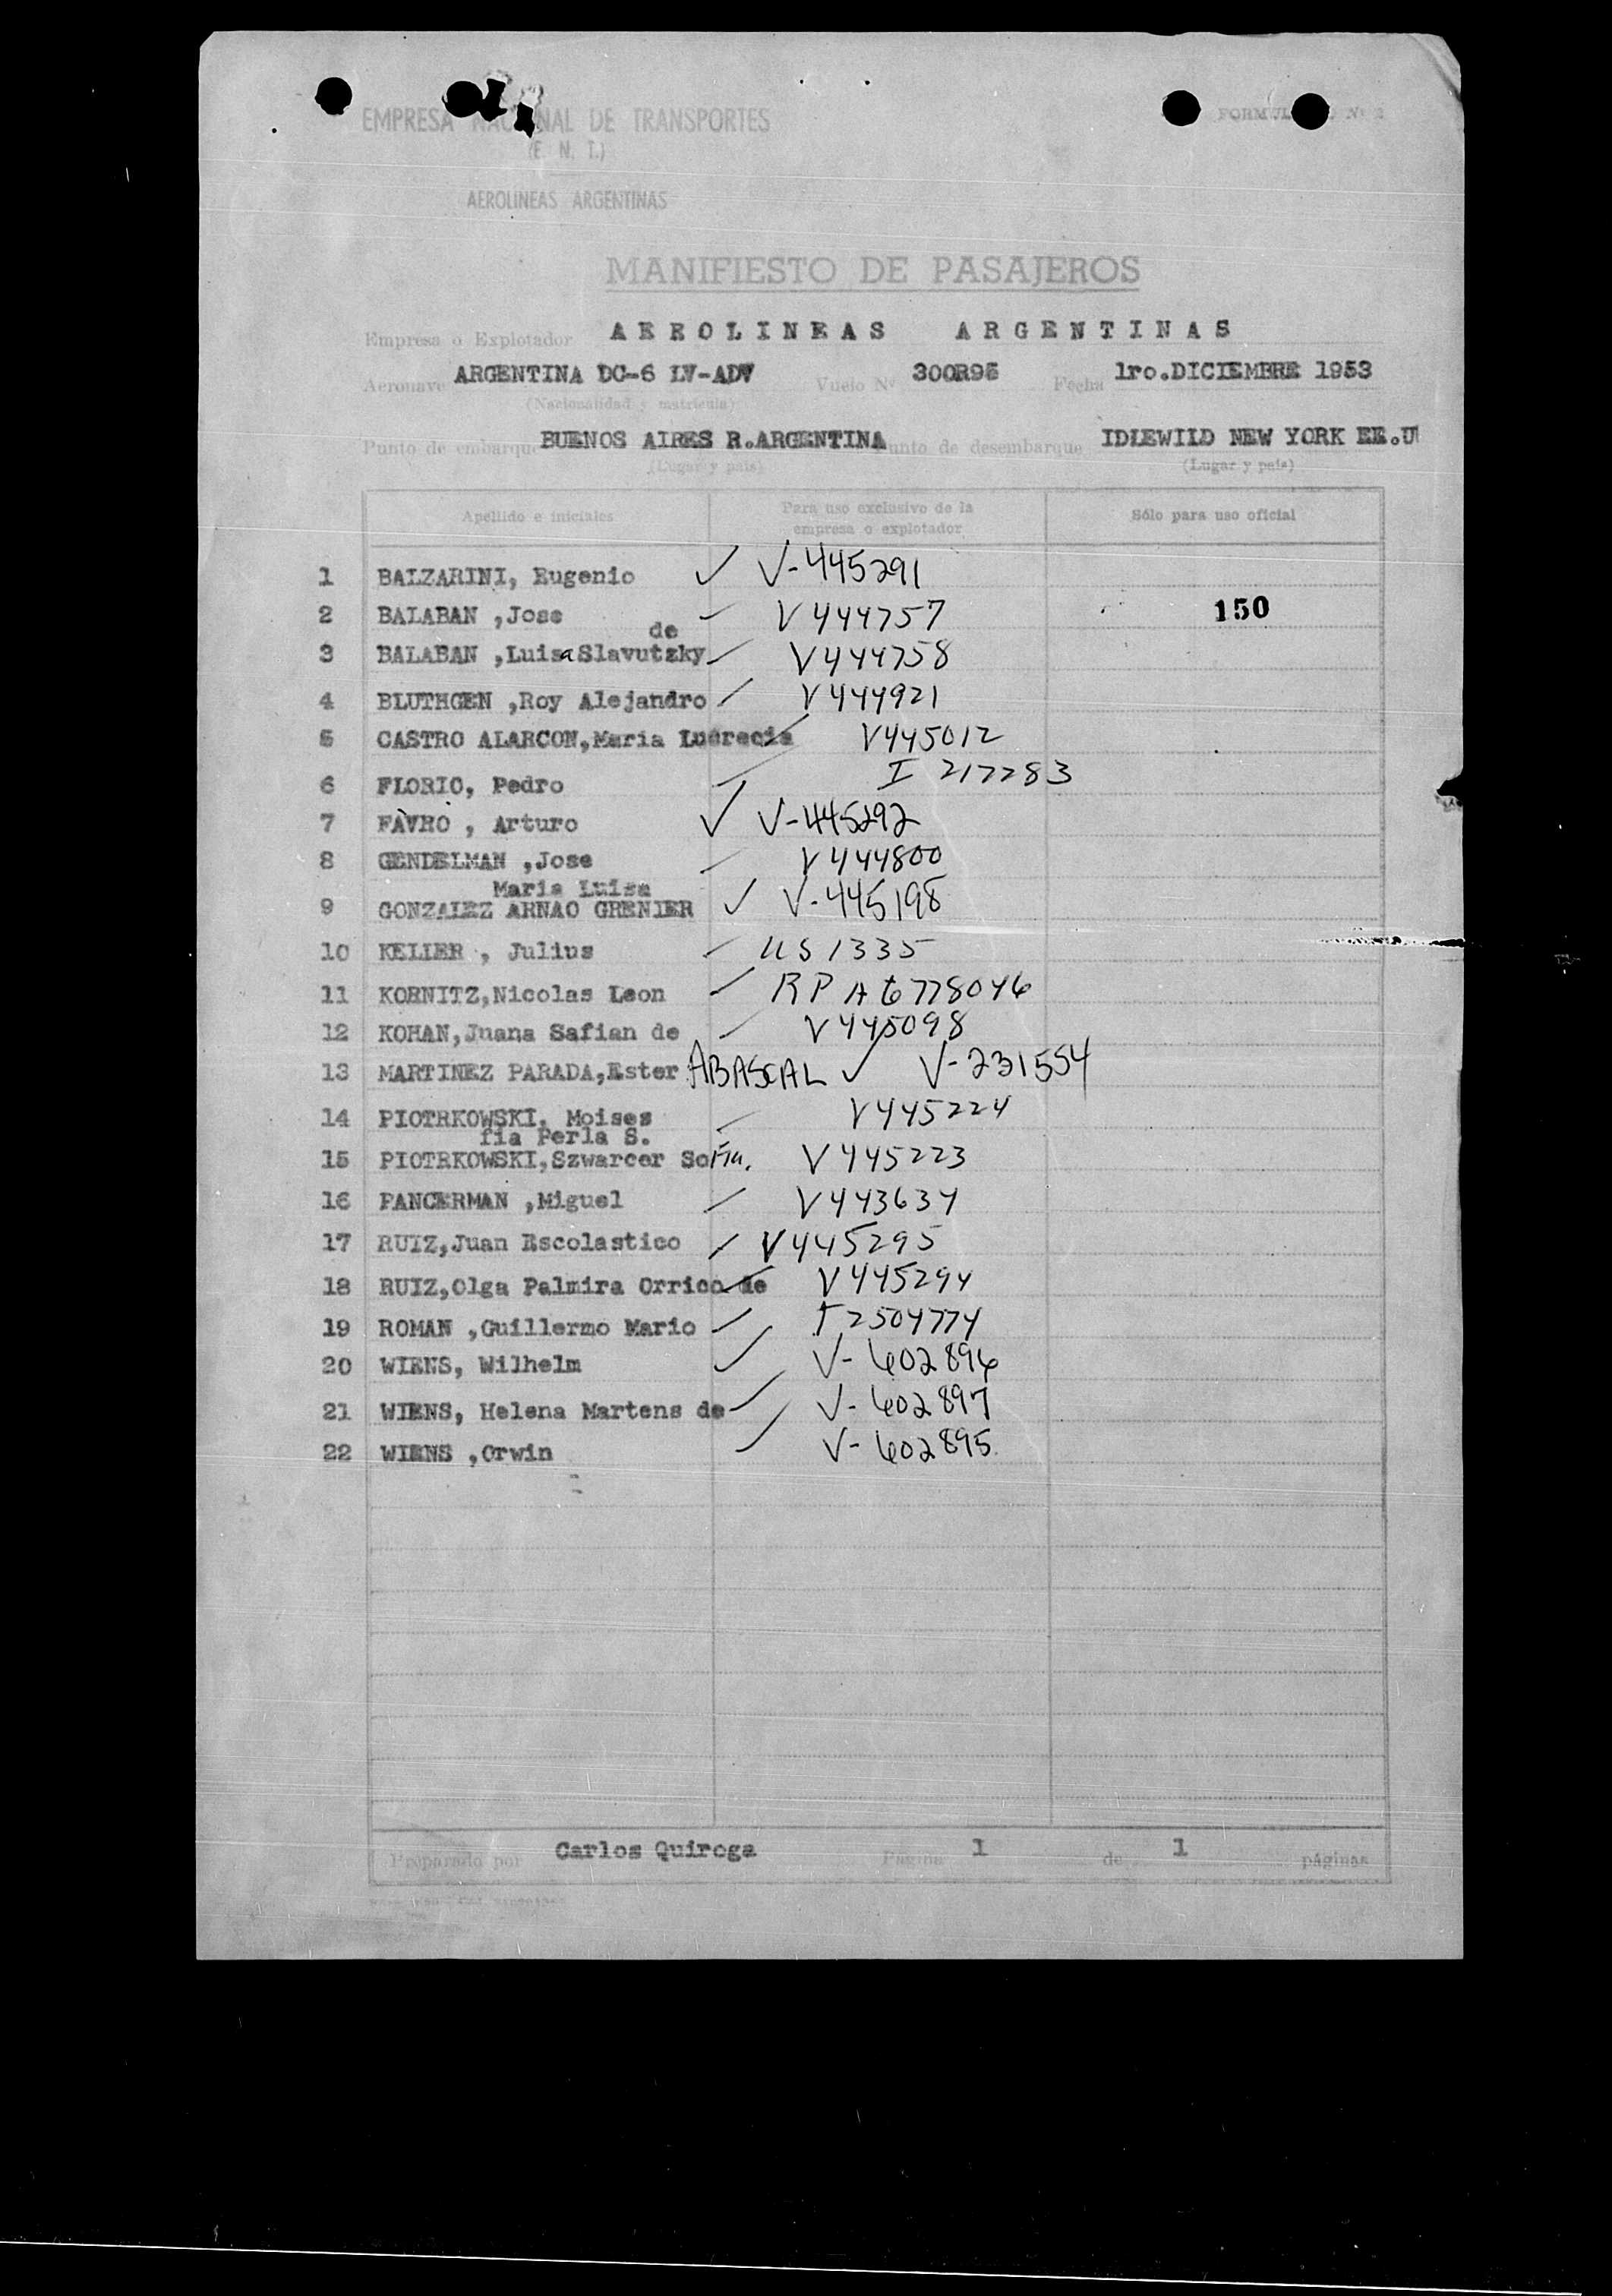 EMPRESA NACIONAL DE TRANSPORTES
(E. N. T.)
AEROLINEAS ARGENTINAS
FORMUL Nº 2
MANIFIESTO DE PASAJEROS
Empresa o Explotador AEROLINEAS ARGENTINAS
Aeronave ARGENTINA DC-6 LV-ADV Vuelo Nº 300R95 Fecha 1ro.DICIEMBRE 1953
(Nacionalidad y matrícula)
Punto de embarque BUENOS AIRES R.ARGENTINA Punto de desembarque IDLEWILD NEW YORK EE.U
(Lugar y país) (Lugar y país)
Apellido e iniciales Para uso exclusivo de la empresa o explotador Sólo para uso oficial
1 BALZARINI, Eugenio ✓ V-445291
2 BALABAN ,Jose V 444757 150
de
3 BALABAN ,Luisa Slavutzky V444758
4 BLUTHGEN ,Roy Alejandro V 444921
5 CASTRO ALARCON,Maria Lucrecia V445012
6 FLORIO, Pedro I 217283
7 FAVRO , Arturo ✓ V-445292
8 GENDELMAN ,Jose V444800
Maria Luisa
9 GONZALEZ ARNAO GRENIER ✓ V-445198
10 KELLER , Julius US 1335
11 KORNITZ,Nicolas Leon RP A6778046
12 KOHAN,Juana Safian de V445098
13 MARTINEZ PARADA,Ester ABASCAL ✓ V-231554
14 PIOTRKOWSKI, Moises V445224
fia Perla S.
15 PIOTRKOWSKI,Szwarcer Sofia. V445223
16 PANCERMAN ,Miguel V443634
17 RUIZ,Juan Escolastico V445295
18 RUIZ,Olga Palmira Orrico de V445294
19 ROMAN ,Guillermo Mario T2504774
20 WIENS, Wilhelm ✓ V-602896
21 WIENS, Helena Martens de V-602897
22 WIENS ,Orwin V-602895
Preparado por Carlos Quiroga Página 1 de 1 páginas